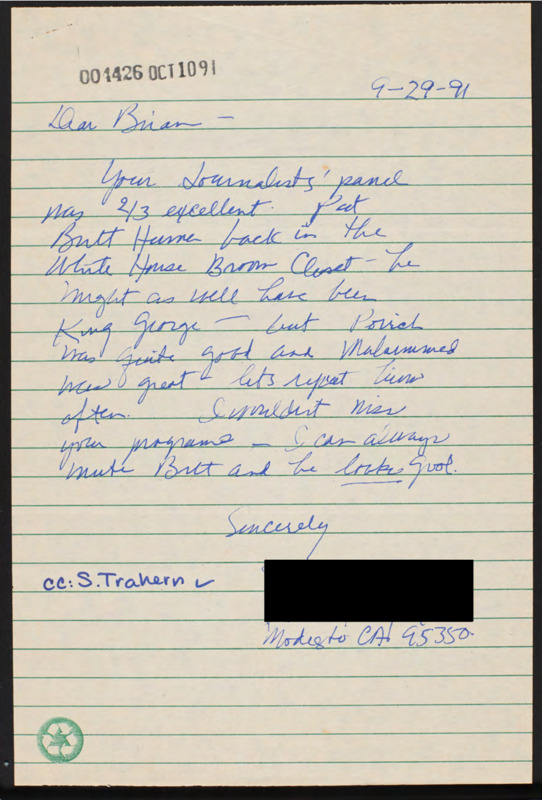 001426 OCT 10 91
9-29-91
Dear Brian -
Your Journalists' panel
was 2/3 excellent. Put
Britt Hume back in the
White House Broom Closet - he
might as well have been
King George - but
was quite good and Mohammed
was great - lets repeat him
often. I wouldn't miss
your programs - I can always
mute Britt and he looks good.
Sincerely
cc: S. Trahern
Modesto CA 95350